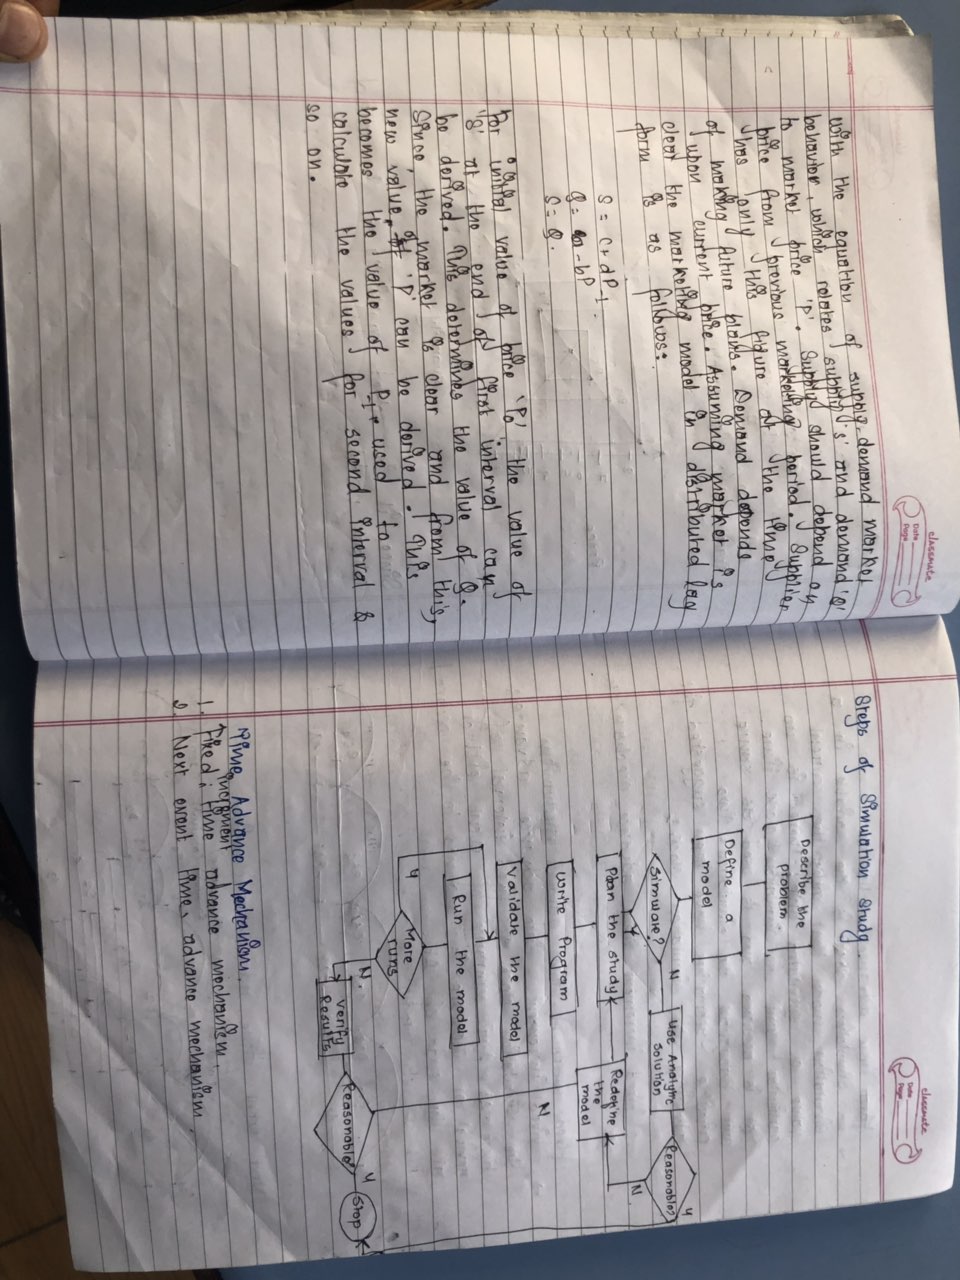 classmate
Date
Page
with the equation of supply-demand market
behavior, which relates supply 's' and demand 'Q'
to market price 'P'. Supply should depend on
price from previous marketing period. Supplier
has only this figure at the time
of making future plans. Demand depends
of upon current price. Assuming market is
clear the marketing model in distributed lag
form is as follows:
S = c+dP-1
Q = a-bP
S = Q.
For initial value of price 'P0', the value of
'S' at the end of first interval can
be derived. This determines the value of Q.
Since, the market is clear and from this,
new value of 'P' can be derived. This
becomes the value of P-1 used to
calculate the values for second interval &
so on.
classmate
Date
Page
Steps of Simulation Study
Describe the
problem.
Define a
model
Simware?
N
Use Analytic
solution
Reasonable?
Y
N
Y
Plan the study
Redefine
the
model
Write Program
Validate the model
N
Run the model
More
runs
Y
N.
Verify
Results
Reasonable?
Y
Stop
Time Advance Mechanism.
1. Fixed increment time advance mechanism.
2. Next event time advance mechanism